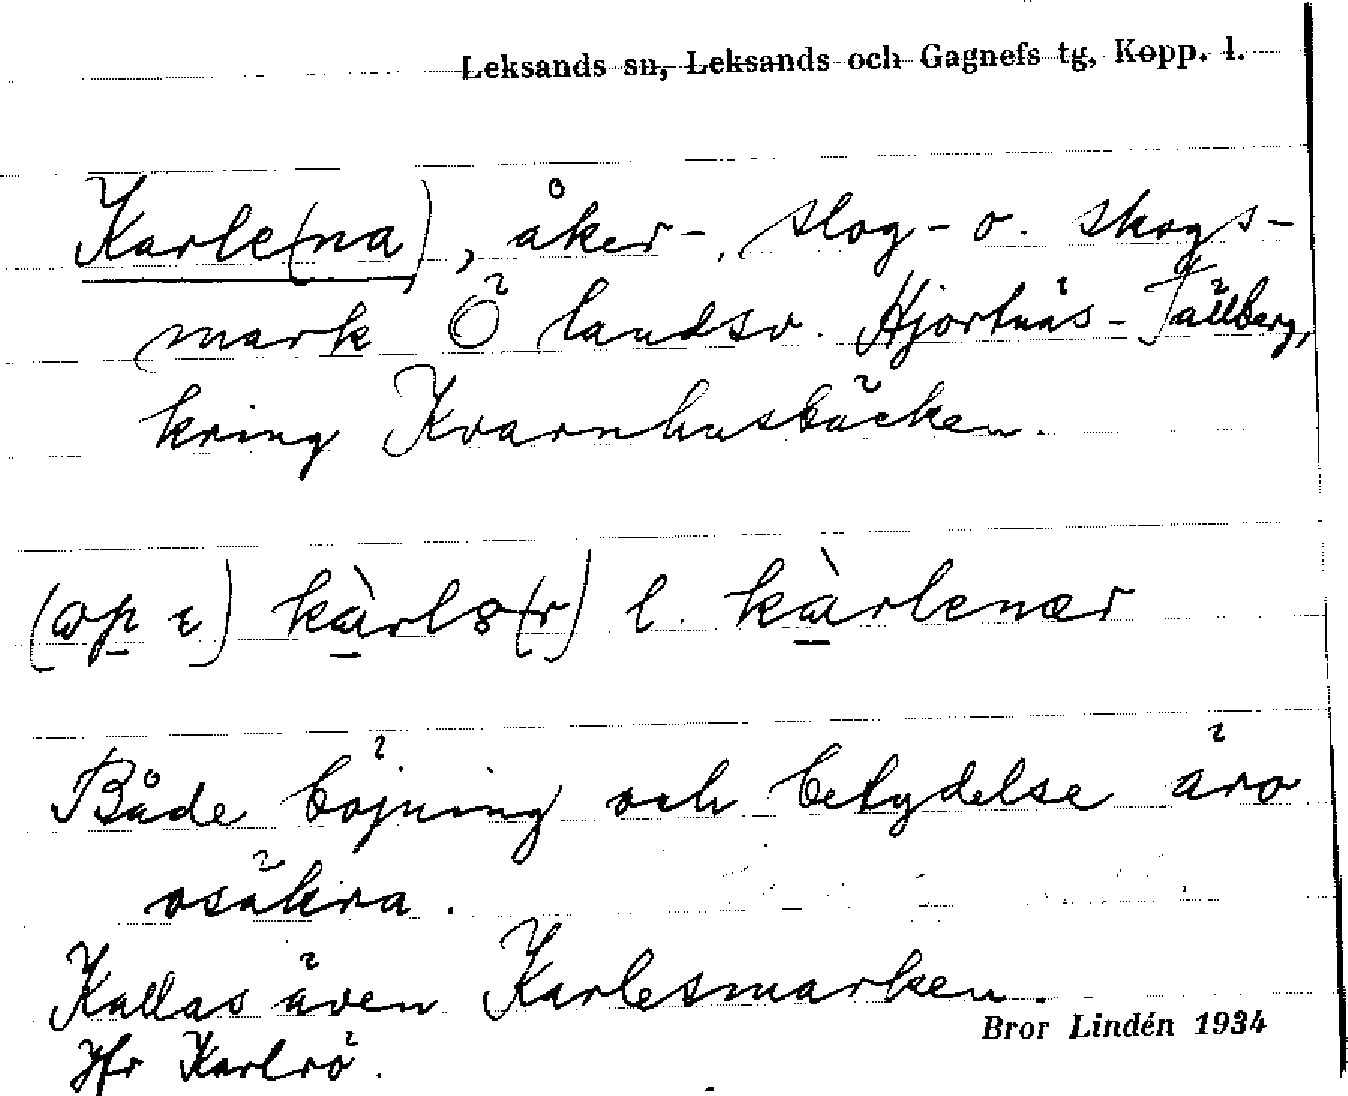 Leksands sn, Leksands och Gagnefs tg, Kopp. l.
Karle(na), åker-, slog- o. skogs-
mark Ö landsv. Hjortnäs-Tällberg,
kring Kvarnhusbäcken.
kàrlə(r) l. kàrlenær
Både böjning och betydelse äro
osäkra.
Kallas även Karlesmarken.
Bror Lindén 1934
Jfr Karlrö.